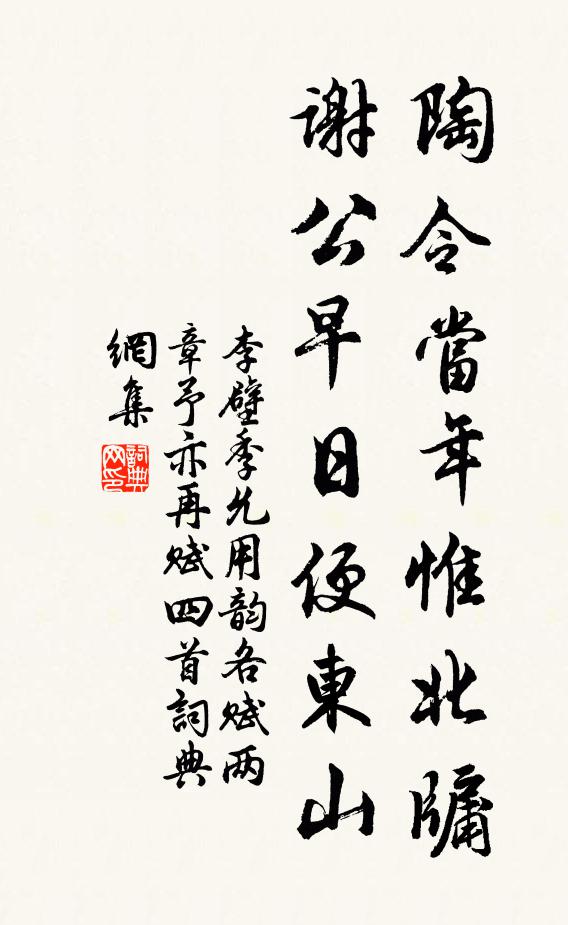 陶令當年惟北牖
謝公早日便東山
李壁季允用韵各赋两
章予亦再赋四首詞典
網集
詞典
网印